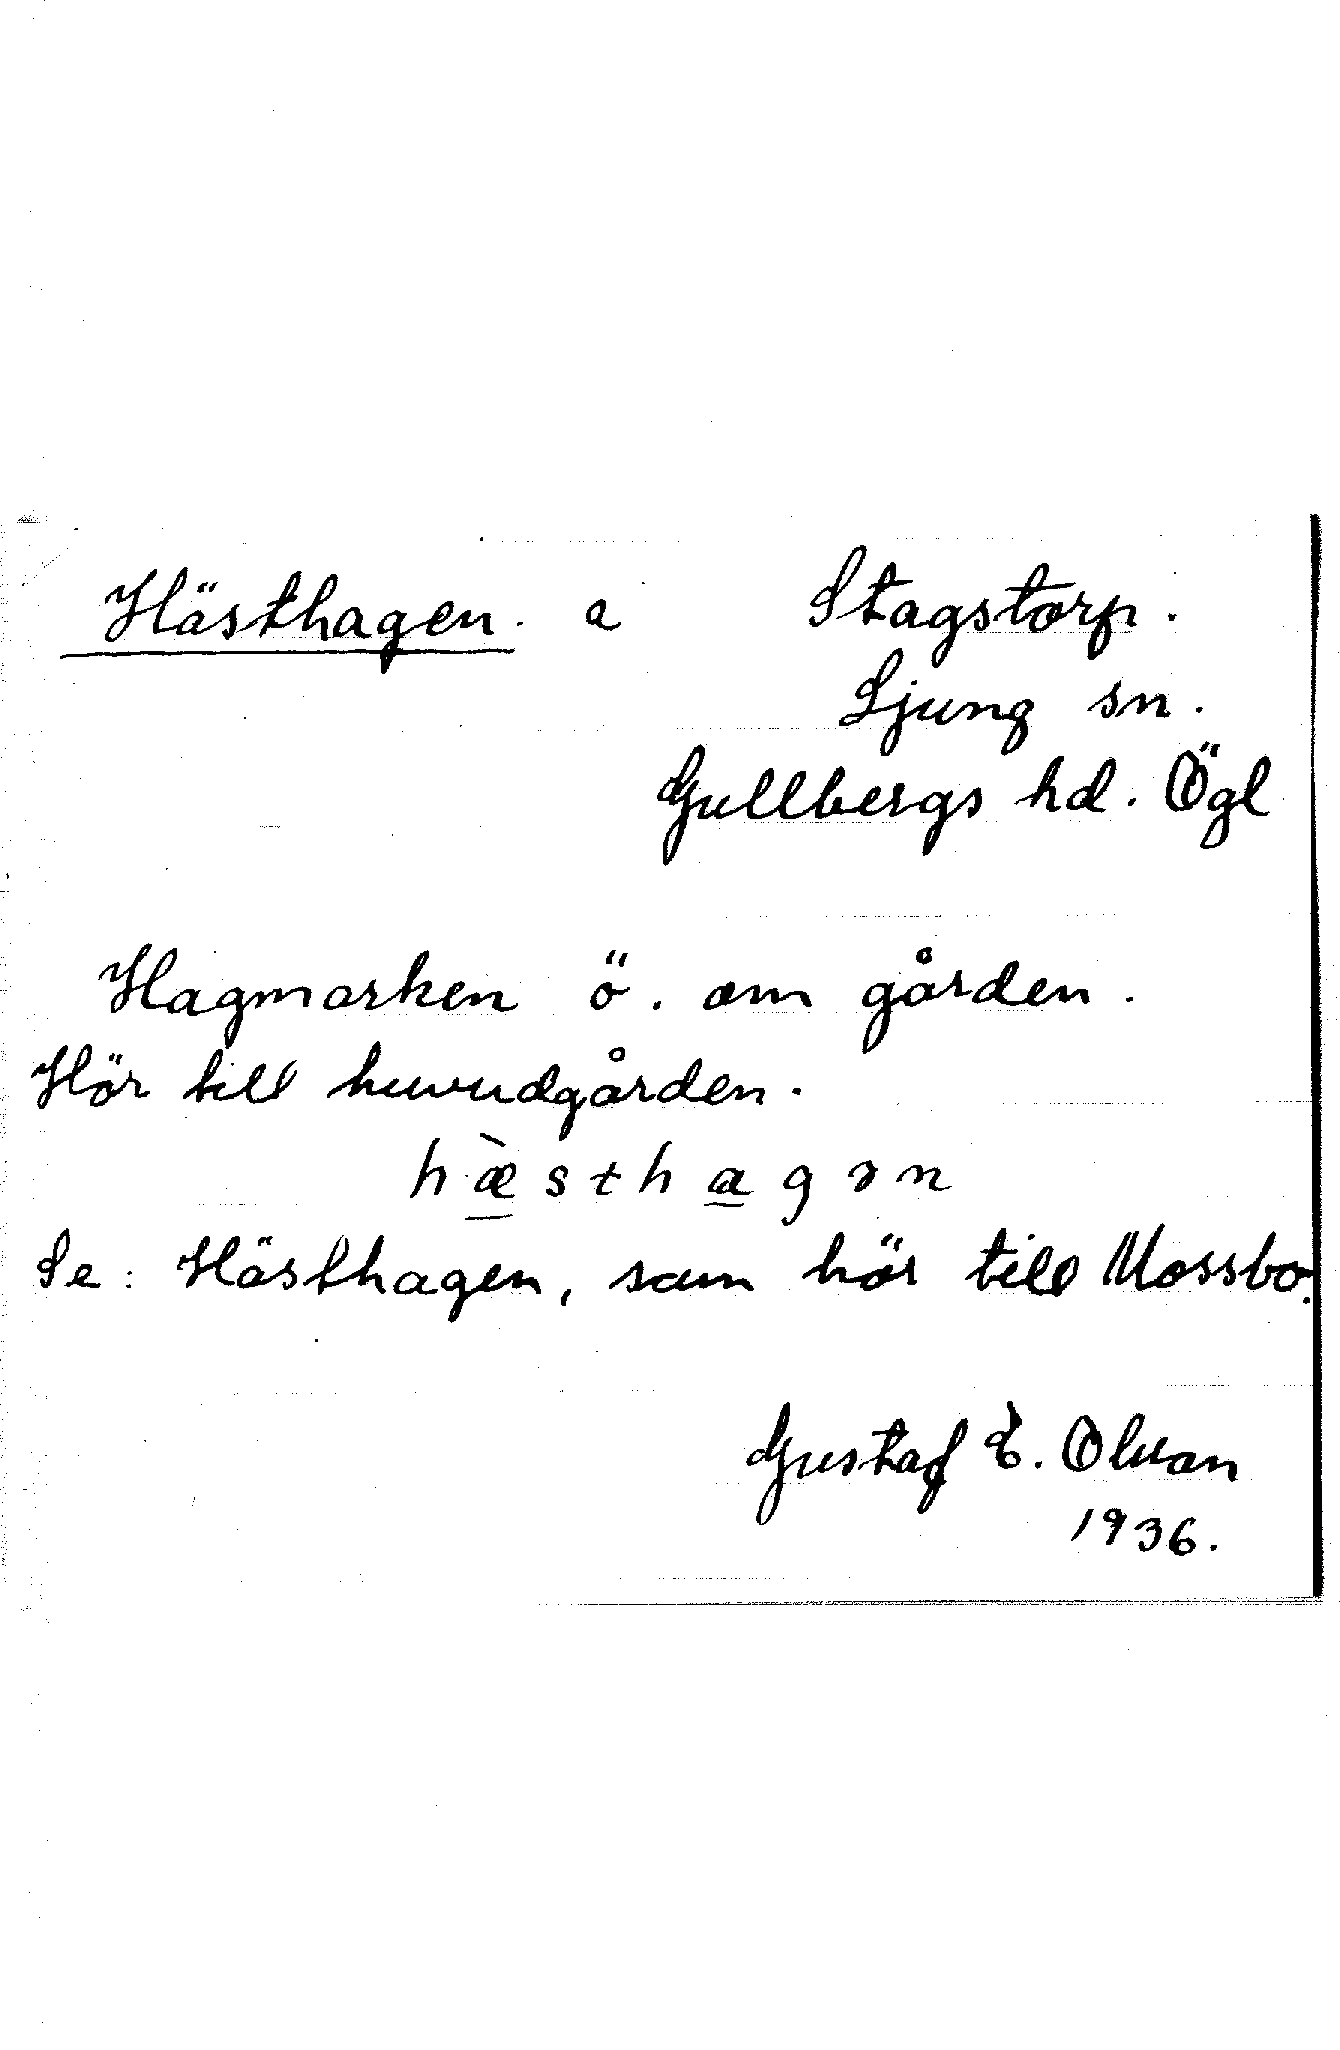 Hästhagen. a Stagstorp.
Ljung sn.
Gullbergs hd. Ögl
Hagmarken ö. om gården.
Hör till huvudgården.
hæ̀sthagən
Se: Hästhagen, som hör till Mossbo.
Gustaf E. Olvan
1936.